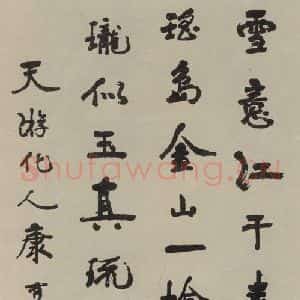 雪意江干
瑤島金山一
瓏似玉真玩
天游化人康有
Shufawang.cn